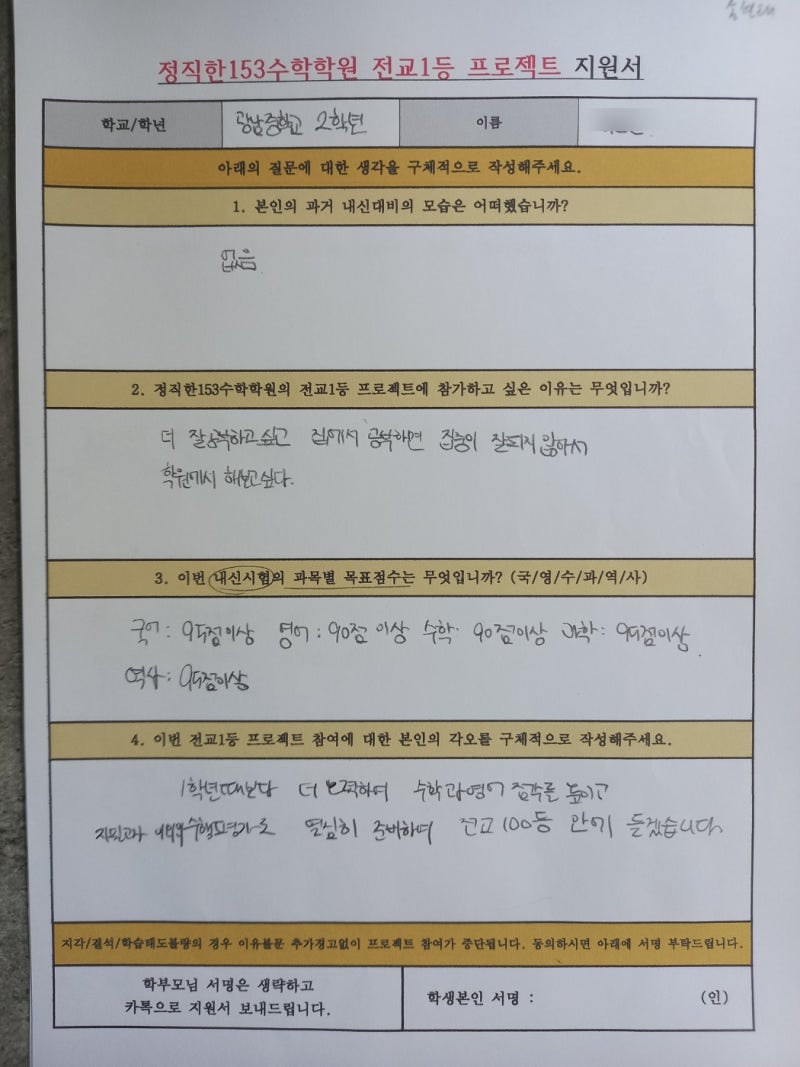 정직한153수학학원 전교1등 프로젝트 지원서
학교/학년 광남중학교 2학년 이름
아래의 질문에 대한 생각을 구체적으로 작성해주세요.
1. 본인의 과거 내신대비의 모습은 어떠했습니까?
없음
2. 정직한153수학학원의 전교1등 프로젝트에 참가하고 싶은 이유는 무엇입니까?
더 잘 하고 싶고 집에서 공부하면 집중이 잘되지 않아서
학원에서 해보고싶다.
3. 이번 내신시험의 과목별 목표점수는 무엇입니까? (국/영/수/과/역/사)
국어: 95점이상 영어: 90점 이상 수학: 90점이상 과학: 95점이상
역사: 95점이상
4. 이번 전교1등 프로젝트 참여에 대한 본인의 각오를 구체적으로 작성해주세요.
1학년때보다 더 노력하여 수학과영어 점수를 높이고
지필고사 수행평가도 열심히 준비하여 전교 100등 안에 들겠습니다
지각/결석/학습태도불량의 경우 이유불문 추가경고없이 프로젝트 참여가 중단됩니다. 동의하시면 아래에 서명 부탁드립니다.
학부모님 서명은 생략하고
카톡으로 지원서 보내드립니다.
학생본인 서명 : (인)